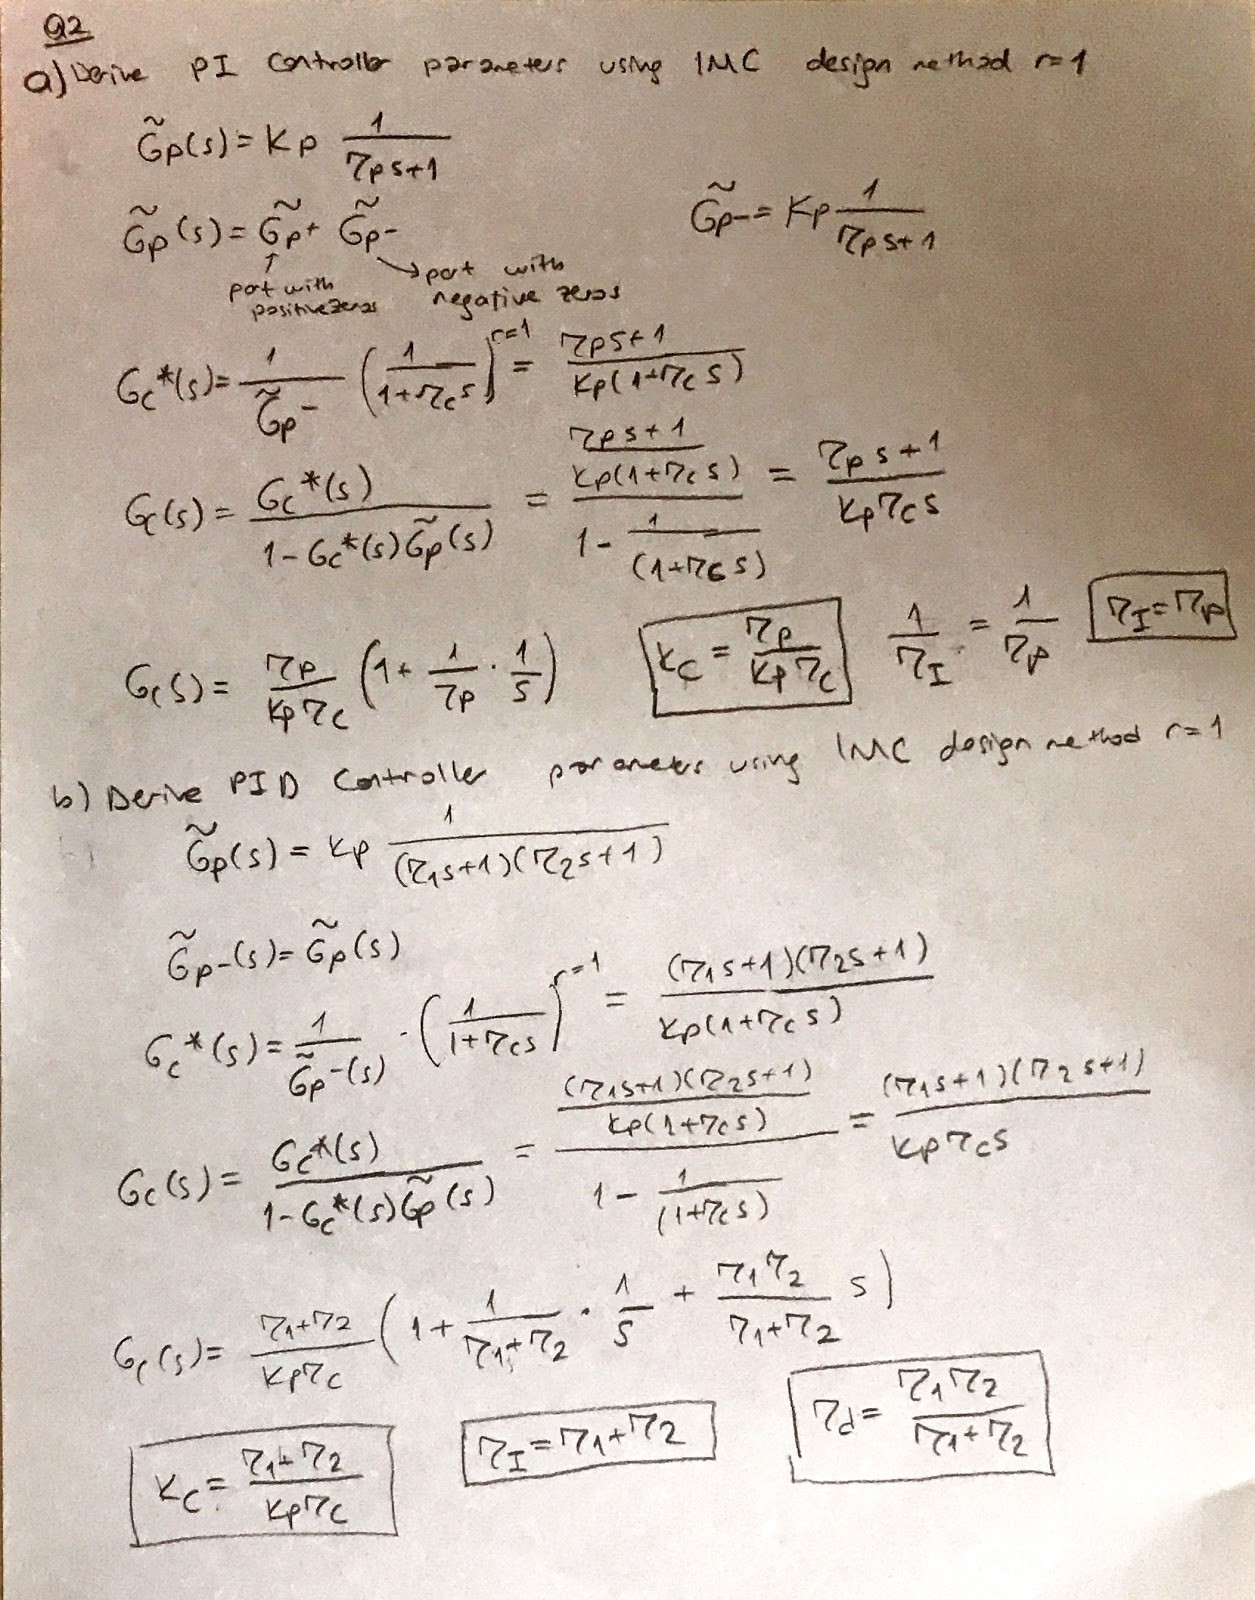 Q2
a) Derive PI Controller parameters using IMC design method r=1
G̃p(s) = Kp 1/(τp s+1)
G̃p(s) = G̃p+ G̃p-
G̃p- = Kp 1/(τp s+1)
part with positive zeros
part with negative zeros
Gc*(s) = 1/G̃p- (1/(1+τc s))^r=1 = (τp s+1)/(Kp(1+τc s))
Gc(s) = Gc*(s)/(1-Gc*(s)G̃p(s)) = ((τp s+1)/(Kp(1+τc s)))/(1 - 1/(1+τc s)) = (τp s+1)/(Kp τc s)
Gc(s) = τp/(Kp τc) (1 + 1/τp · 1/s)
Kc = τp/(Kp τc)
1/τI = 1/τp
τI = τp
b) Derive PID Controller parameters using IMC design method r=1
G̃p(s) = Kp 1/((τ1s+1)(τ2s+1))
G̃p-(s) = G̃p(s)
Gc*(s) = 1/G̃p-(s) · (1/(1+τc s))^r=1 = (τ1s+1)(τ2s+1)/(Kp(1+τc s))
Gc(s) = Gc*(s)/(1-Gc*(s)G̃p(s)) = ((τ1s+1)(τ2s+1)/(Kp(1+τc s)))/(1 - 1/(1+τc s)) = (τ1s+1)(τ2s+1)/(Kp τc s)
Gc(s) = (τ1+τ2)/(Kp τc) (1 + 1/(τ1+τ2) · 1/s + τ1τ2/(τ1+τ2) s)
Kc = (τ1+τ2)/(Kp τc)
τI = τ1+τ2
τd = τ1τ2/(τ1+τ2)